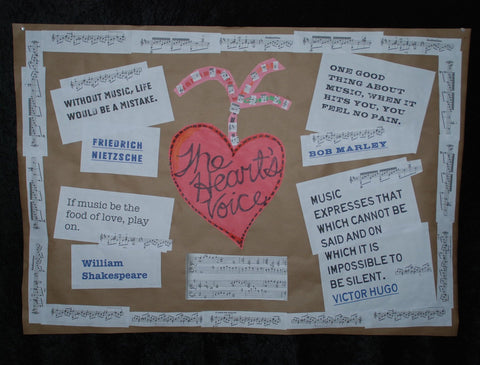 WITHOUT MUSIC, LIFE
WOULD BE A MISTAKE.
FRIEDRICH
NIETZSCHE
If music be the
food of love, play
on.
William
Shakespeare
The
Heart's
Voice
ONE GOOD
THING ABOUT
MUSIC, WHEN IT
HITS YOU, YOU
FEEL NO PAIN.
BOB MARLEY
MUSIC
EXPRESSES THAT
WHICH CANNOT BE
SAID AND ON
WHICH IT IS
IMPOSSIBLE TO
BE SILENT.
VICTOR HUGO